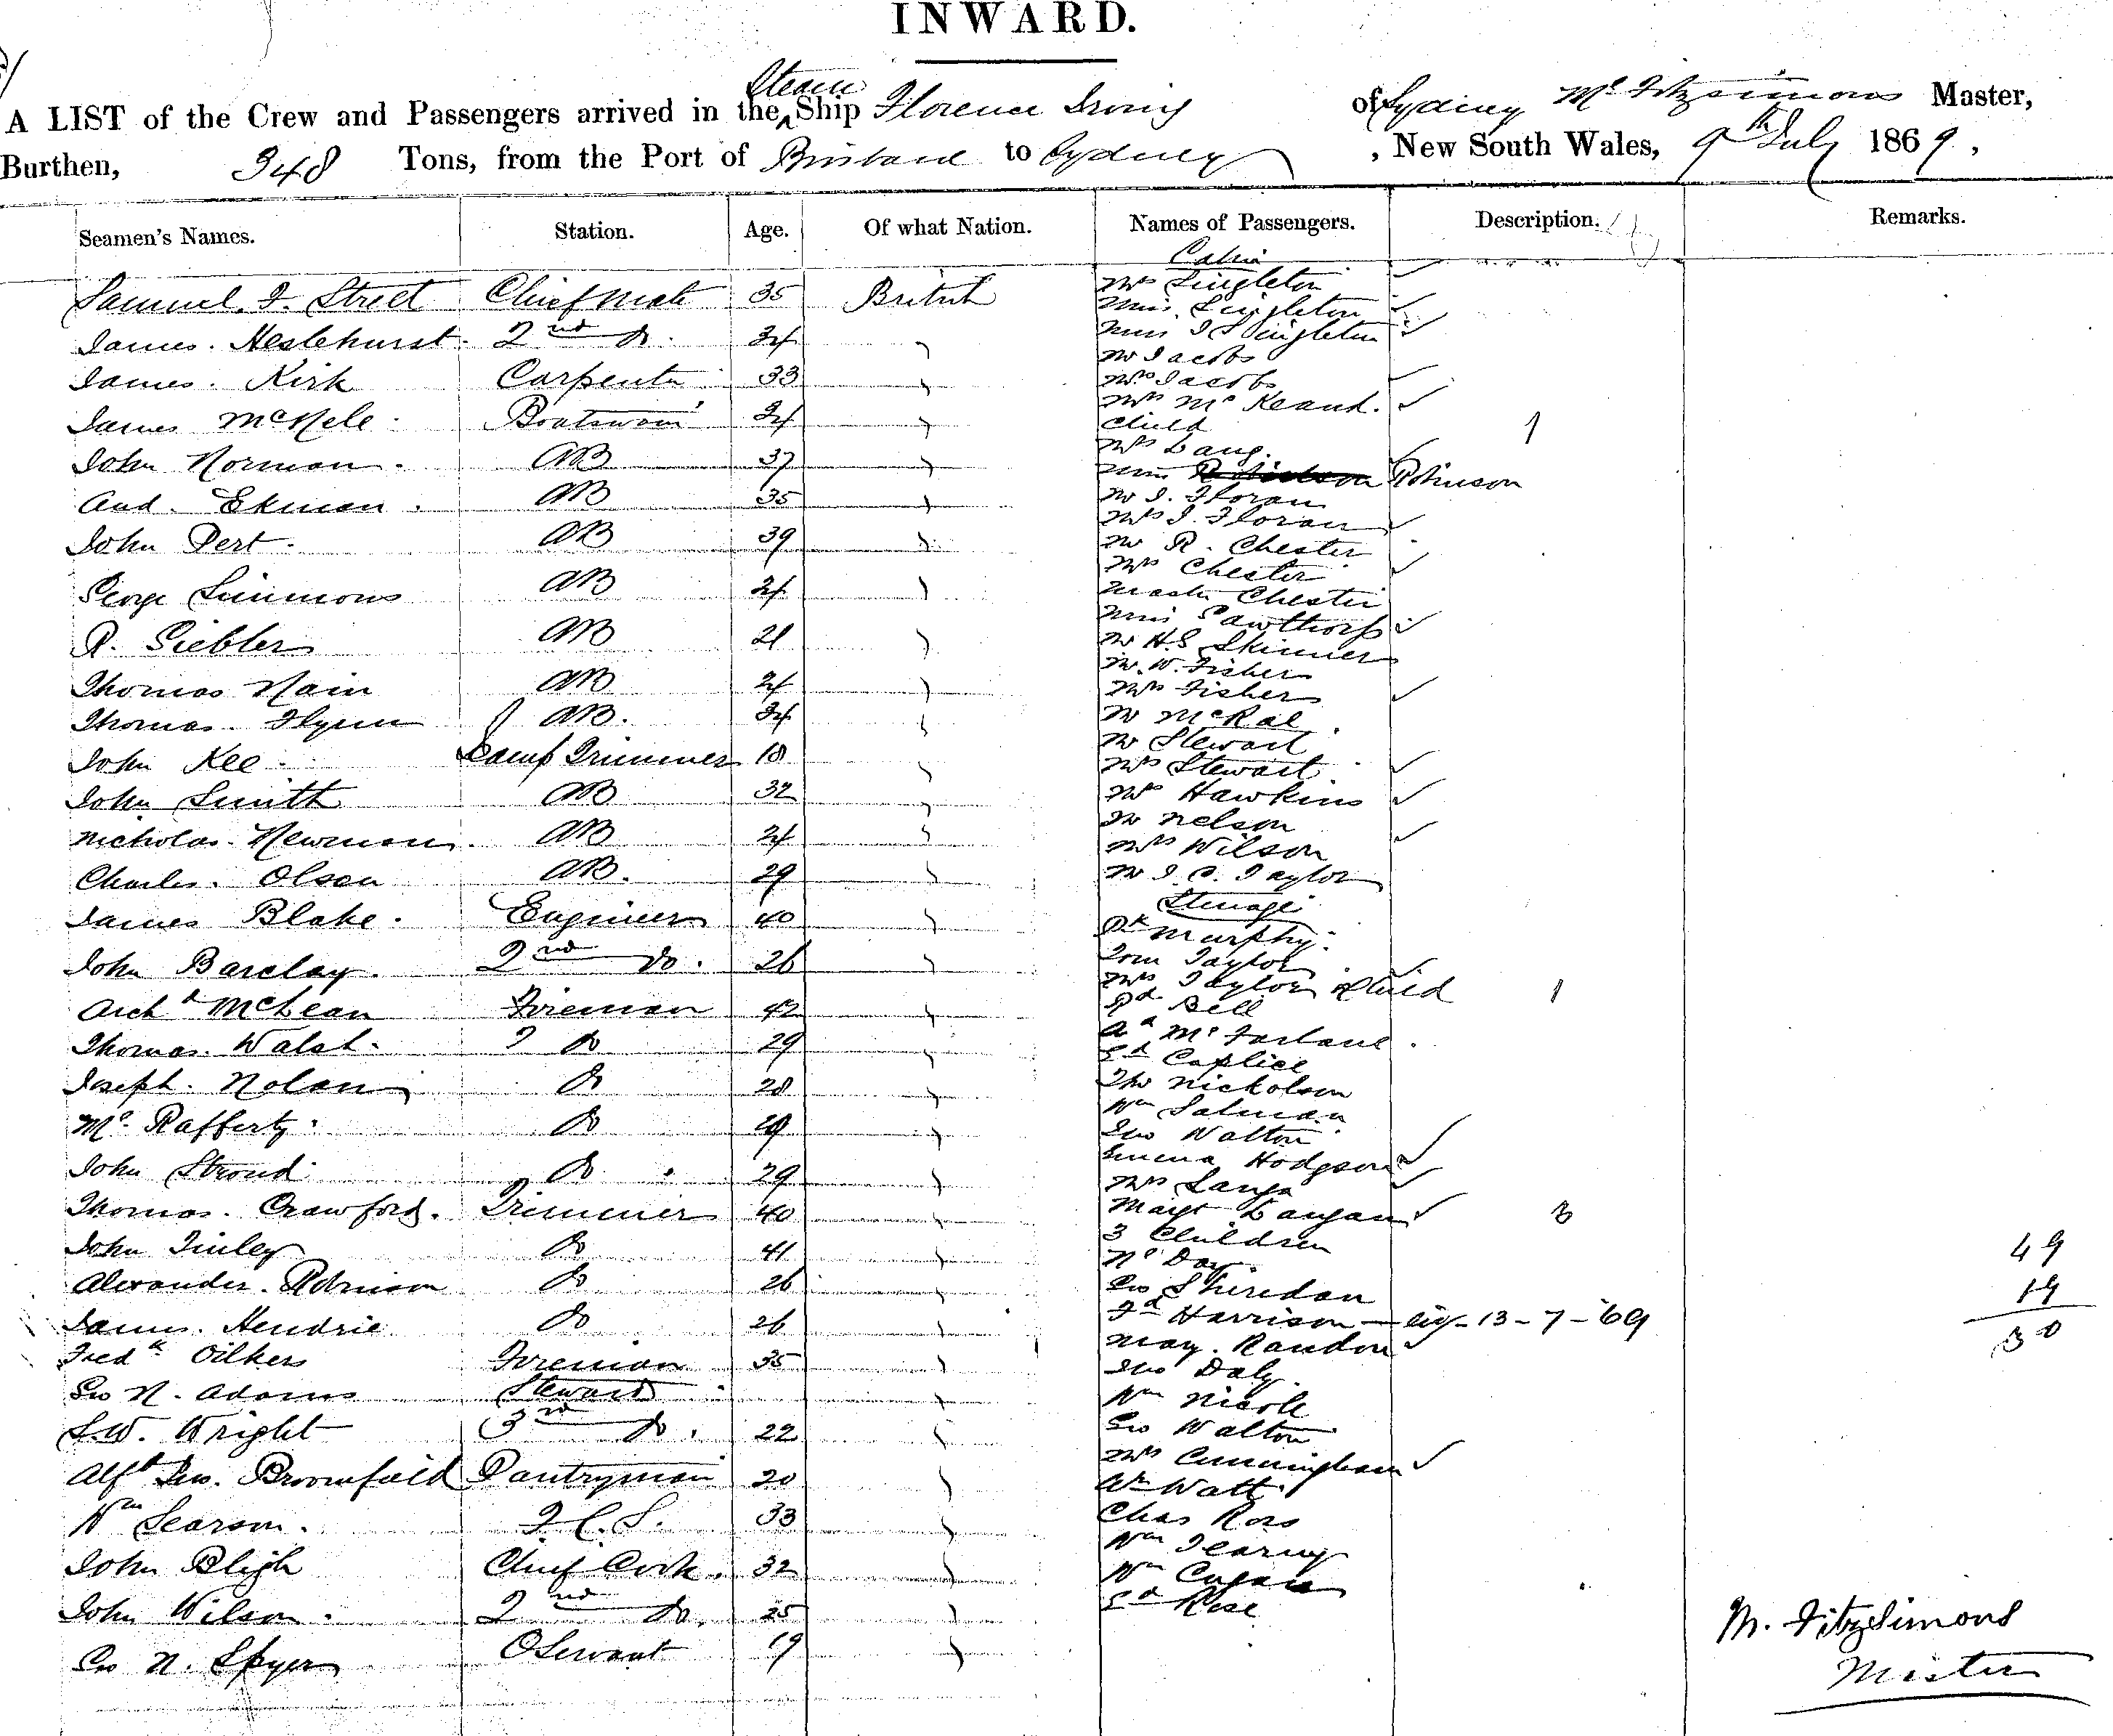 INWARD.
A LIST of the Crew and Passengers arrived in the Steam Ship Florence Irving of Sydney Mc Fitzsimons Master,
Burthen, 348 Tons, from the Port of Brisbane to Sydney, New South Wales, 9th July 1869,
Seamen's Names. Station. Age. Of what Nation. Names of Passengers. Description. Remarks.
Cabin
Samuel. F. Street Chief Mate 35 British Mrs Singleton
Miss Singleton
James. Heslehurst. 2nd Do. 24 " Miss I Singleton
Mr Jacobs
James. Kirk Carpenter 33 " Mrs Jacobs
Mrs Mc Keand.
James McNele Boatswain 34 " Child 1
Mrs Lang.
John Norman. AB 37 " Miss Robinson
And. Ekman. AB 35 " Mr I. Floran
Mrs I. Floran
John Pert. AB 39 " Mr R. Chester
Mrs Chester
George Simmons AB 24 " Master Chester
Miss Cawthorp
R. Giebler AB 21 " Mr H.S Skinner
Mr. W. Fisher
Thomas Nain AB 24 " Mrs Fisher
Thomas. Flynn AB. 34 " Mr McRae
Mr Stewart
John Kee Lamp Trimmer 18 " Mrs Stewart
John Smith AB 32 " Mrs Hawkins
Mr Nelson
Nicholas. Newman. AB 24 " Mrs Wilson
Charles. Olsen AB. 29 " Mr I. C. Taylor
Steerage
James Blake. Engineer 40 " Pk Murphy.
Tom Taylor
John Barclay. 2nd Do. 26 " Mrs Taylor & Child 1
Archd McLean Fireman 42 " Rd Bell
Ad Mc Farlane
Thomas. Walsh. Do 29 " Ed Caplice
Joseph. Nolan Do 28 " Tho Nickolson
Wm Salman
Mc. Rafferty. Do 29 " Jno Walton
Emma Hodgson
John Stroud Do 29 " Mrs Langa
Thomas. Crawford. Trimmer 40 " Margt Langan 3
3 Children
John Finley Do 41 " Nc Day 49
Alexander. Robinson Do 26 " Geo Sheridan 19
James. Hendrie Do 26 " Fd Harrison — 13-7-69 30
May. Randon
Fredk Oilkers Fireman 35 " Jno Daly.
Geo N. Adams Steward " Wm Nicole
S.W. Wright 3rd Do. 22 " Geo Walton
Mrs Cunningham
Alfd Geo. Broomfield Pantryman 20 " Wm Watt
Wm Searson. F.C.S. 33 " Chas Ross
Wm Tearny
John Bligh Chief Cook. 32 " Wm
John Wilson. 2nd Do. 25 " Ed Rose
Geo N. Spyer OServant 19 "
M. Fitzsimons
Master